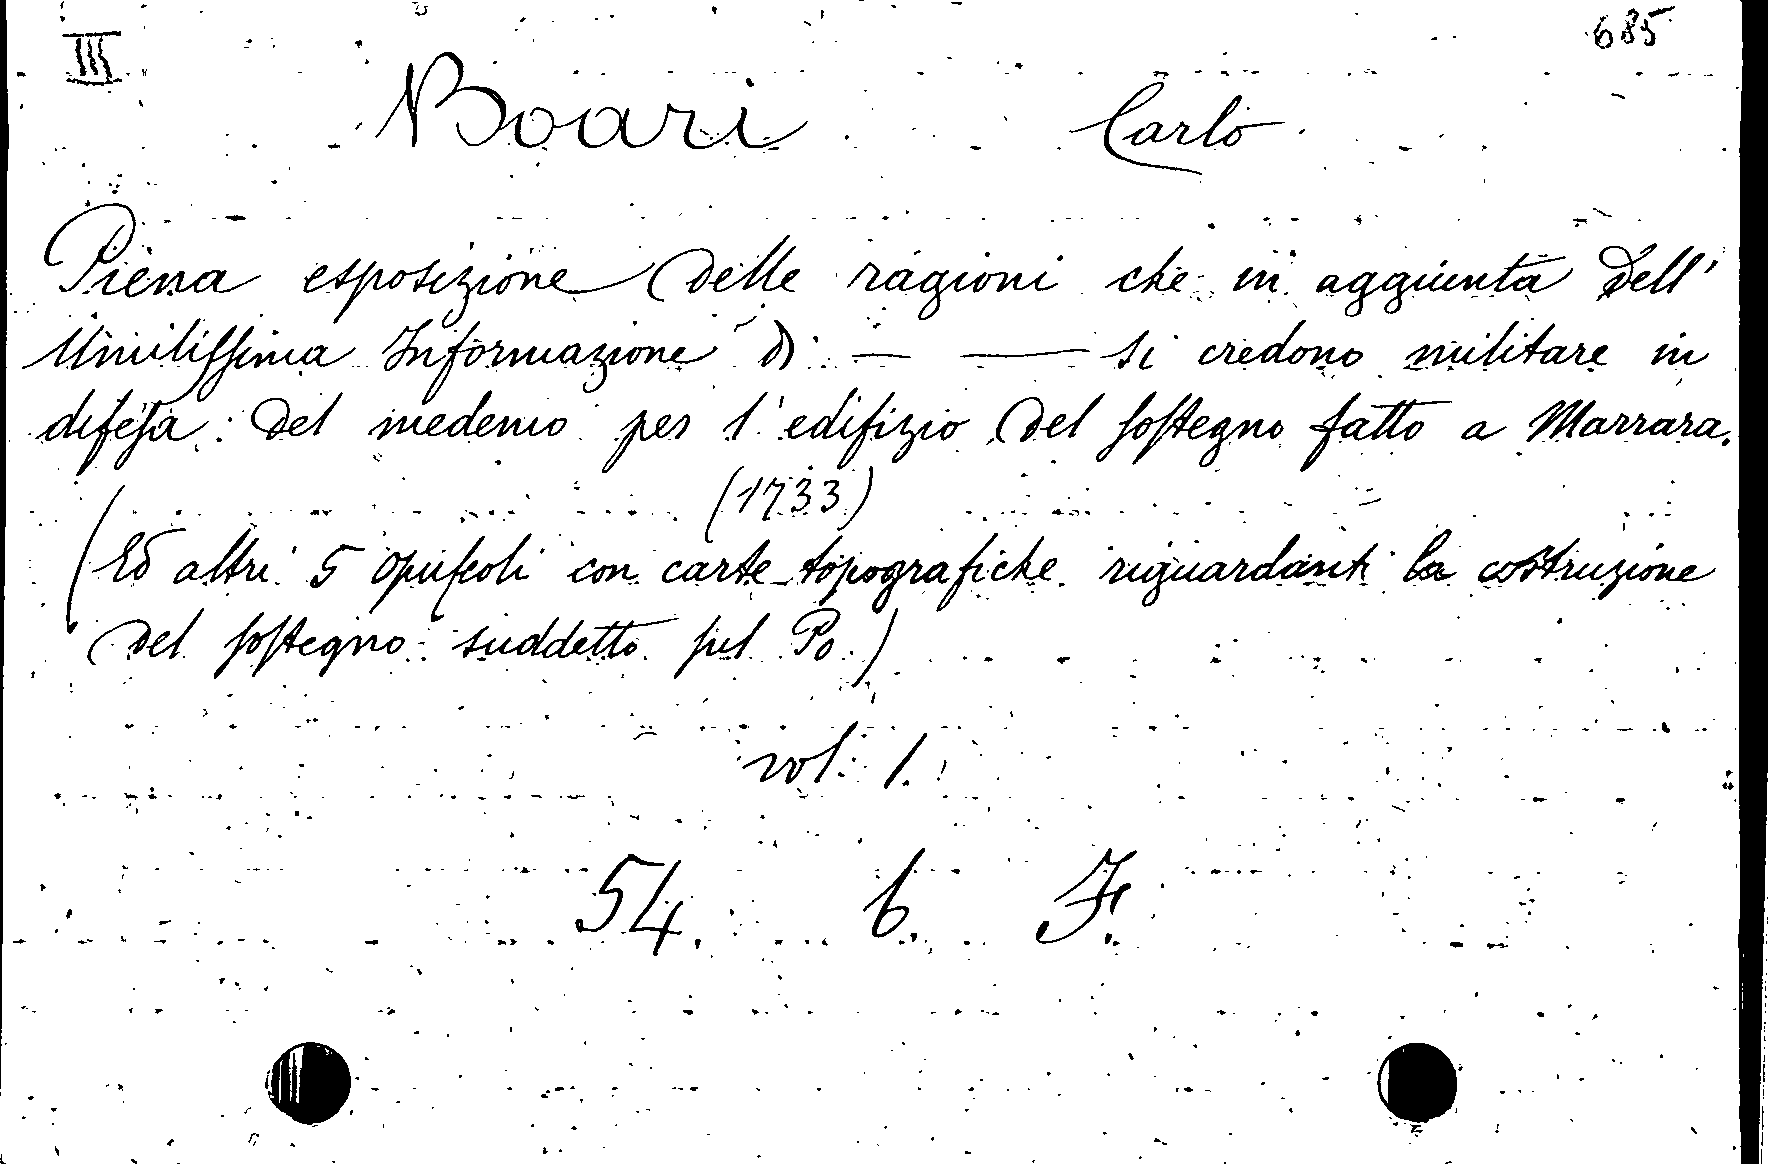 III
685
Boari Carlo
Piena esposizione delle ragioni che in aggiunta dell'
Umilissima Informazione di — — si credono militare in
difesa del medemo per l'edifizio del sostegno fatto a Marrara.
(1733)
(Ed altri 5 opuscoli con carte topografiche riguardanti la costruzione
del sostegno suddetto sul Po.)
vol. 1.
54. 6. F.